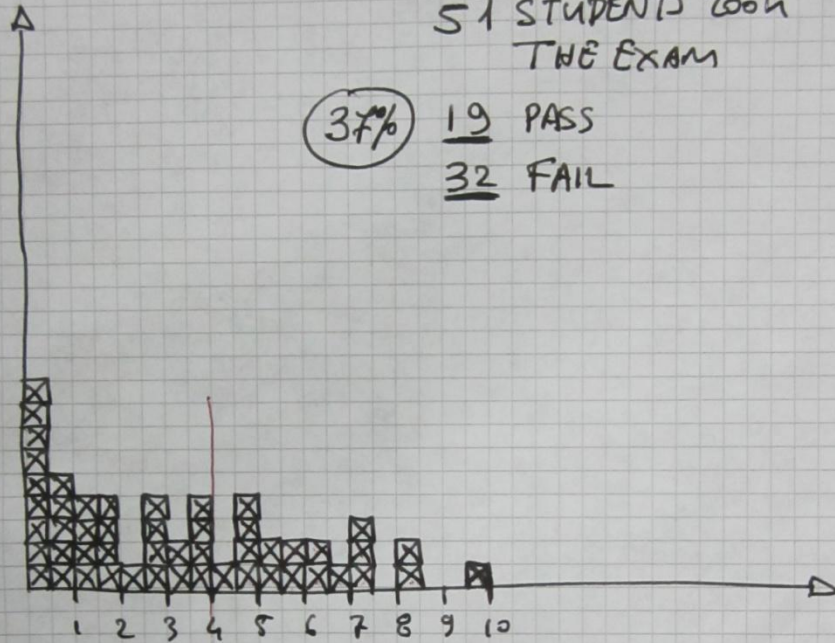 51 STUDENTS TOOK
THE EXAM
37% 19 PASS
32 FAIL
1 2 3 4 5 6 7 8 9 10